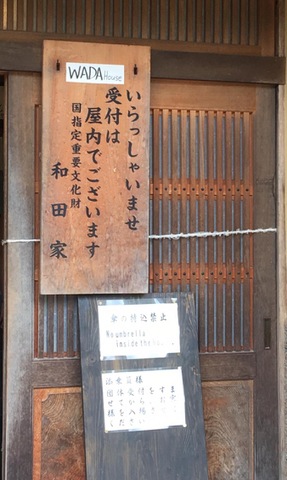 WADA House
いらっしゃいませ
受付は
屋内でございます
国指定重要文化財
和田家
傘の持込禁止
No umbrella
inside the
添乗員様
団体受付をすま
せてから